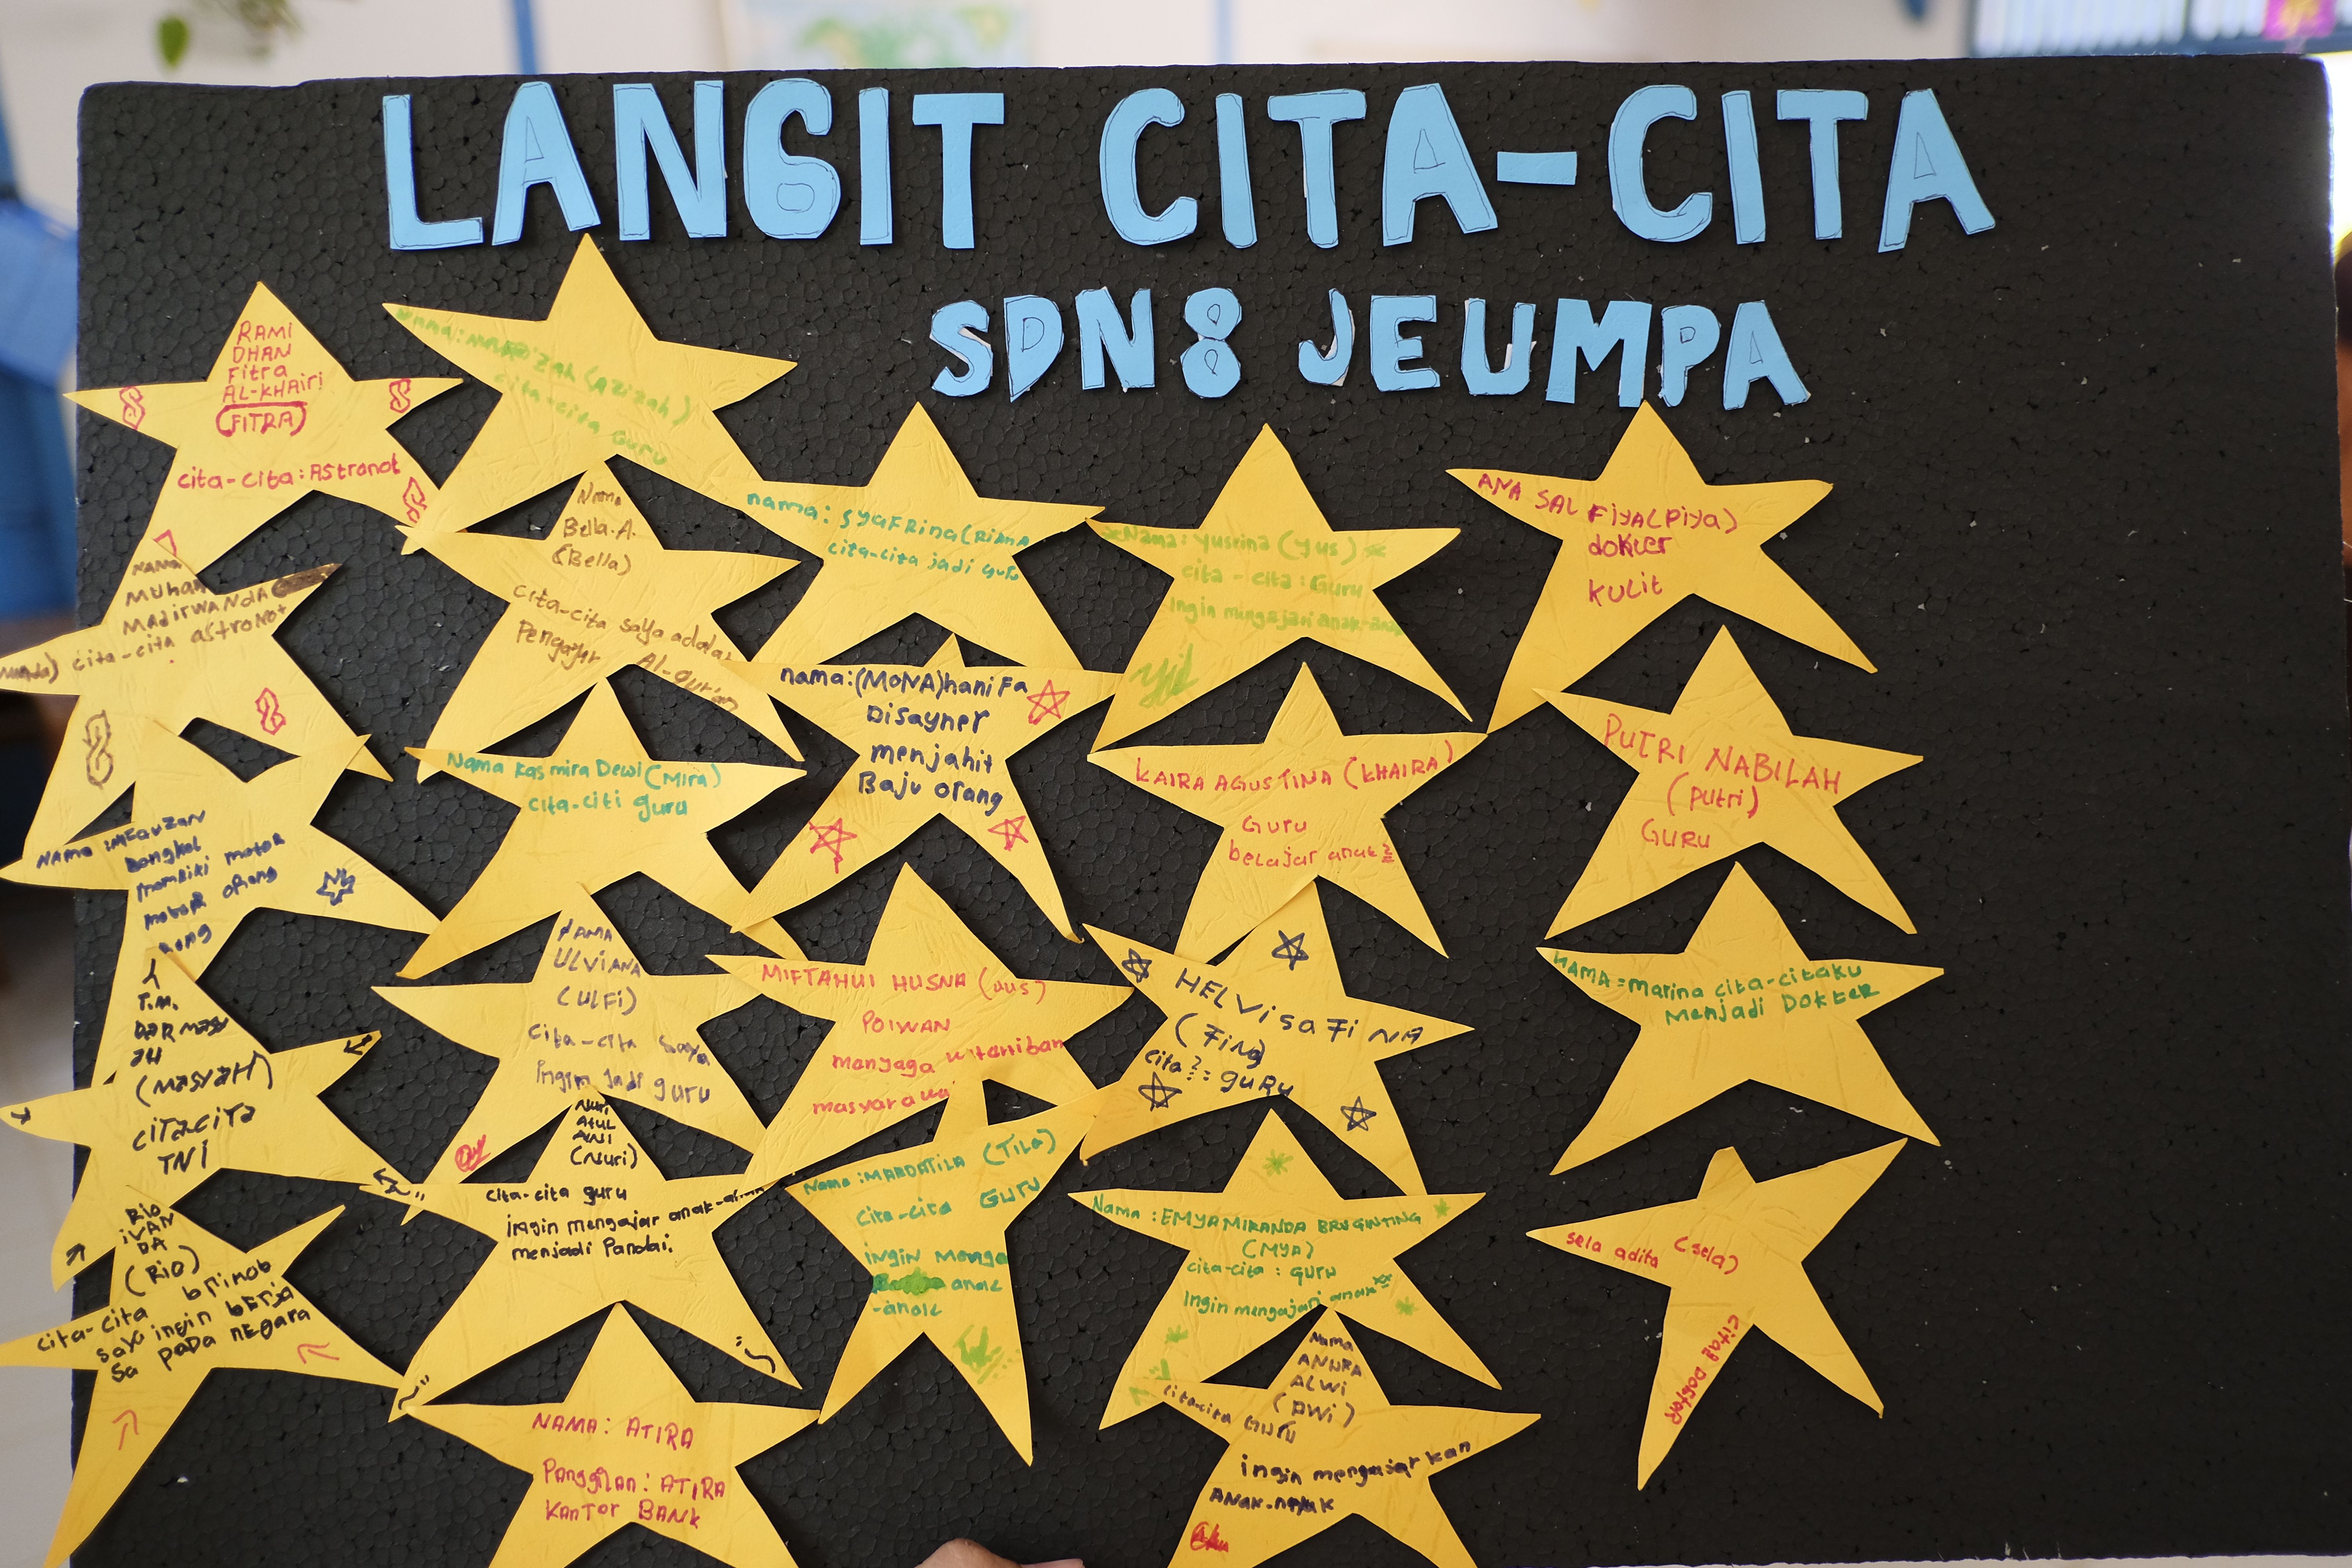 LANGIT CITA-CITA
SDN8 JEUMPA
RAMI
DHAN
Fitra
AL-KHAiri
(FITRA)
cita-cita: Astronot
cita-cita Guru
nama: SyaFRina (Riana
cita-cita jadi guru
Nama: yusrina (yus)
cita-cita: Guru
Ingin mengajari anak-anak
ANA SAL FiyA (Piya)
dokter
kulit
NAMA
MUHAM
MAdirWANdA
cita-cita astronot
Nama
Bella.A.
(Bella)
cita-cita saya adala
Pengajar Al-Qur'an
nama:(MONA)haniFa
Disayner
menjahit
Baju orang
KAIRA AGUSTINA (KHAIRA)
Guru
belajar anak2
PUTRI NABILAH
(Putri)
GURU
Nama Kasmira Dewi (Mira)
cita-citi guru
NAMA : MFauZan
bengkel
motor orang
NAMA
ULViANA
(ULFi)
cita-cita saya
ingin jadi guru
MIFTAHUI HUSNA (uus)
POIWAN
menyaga
HELVi saFiNA
(Fina)
cita2: guru
NAMA = marina cita-citaku
Menjadi Dokter
T.M.
DARMASY
aH
(MASYaH)
ciTacita
TNi
Nuri
Atul
AiNi
(Nuri)
cita-cita guru
ingin mengajar anak-anak
menjadi Pandai.
Nama : MARDATILA (TiLa)
cita-cita Guru
ingin menga
anak
-anak
Nama : EMYAMIRANDA BRUGINTING
(MYA)
cita-cita : GURU
Ingin mengajari anak
sela adita (sela)
cita2 Dogtor
Rio
iVAN
DA
(Rio)
cita-cita brimob
saya ingin berja
Sa paDa nEgara
NAMA: ATIRA
Panggilan: ATIRA
KanTor BANK
Nama
ANURA
ALWi
(AWi)
cita-cita GURU
ingin mengajarkan